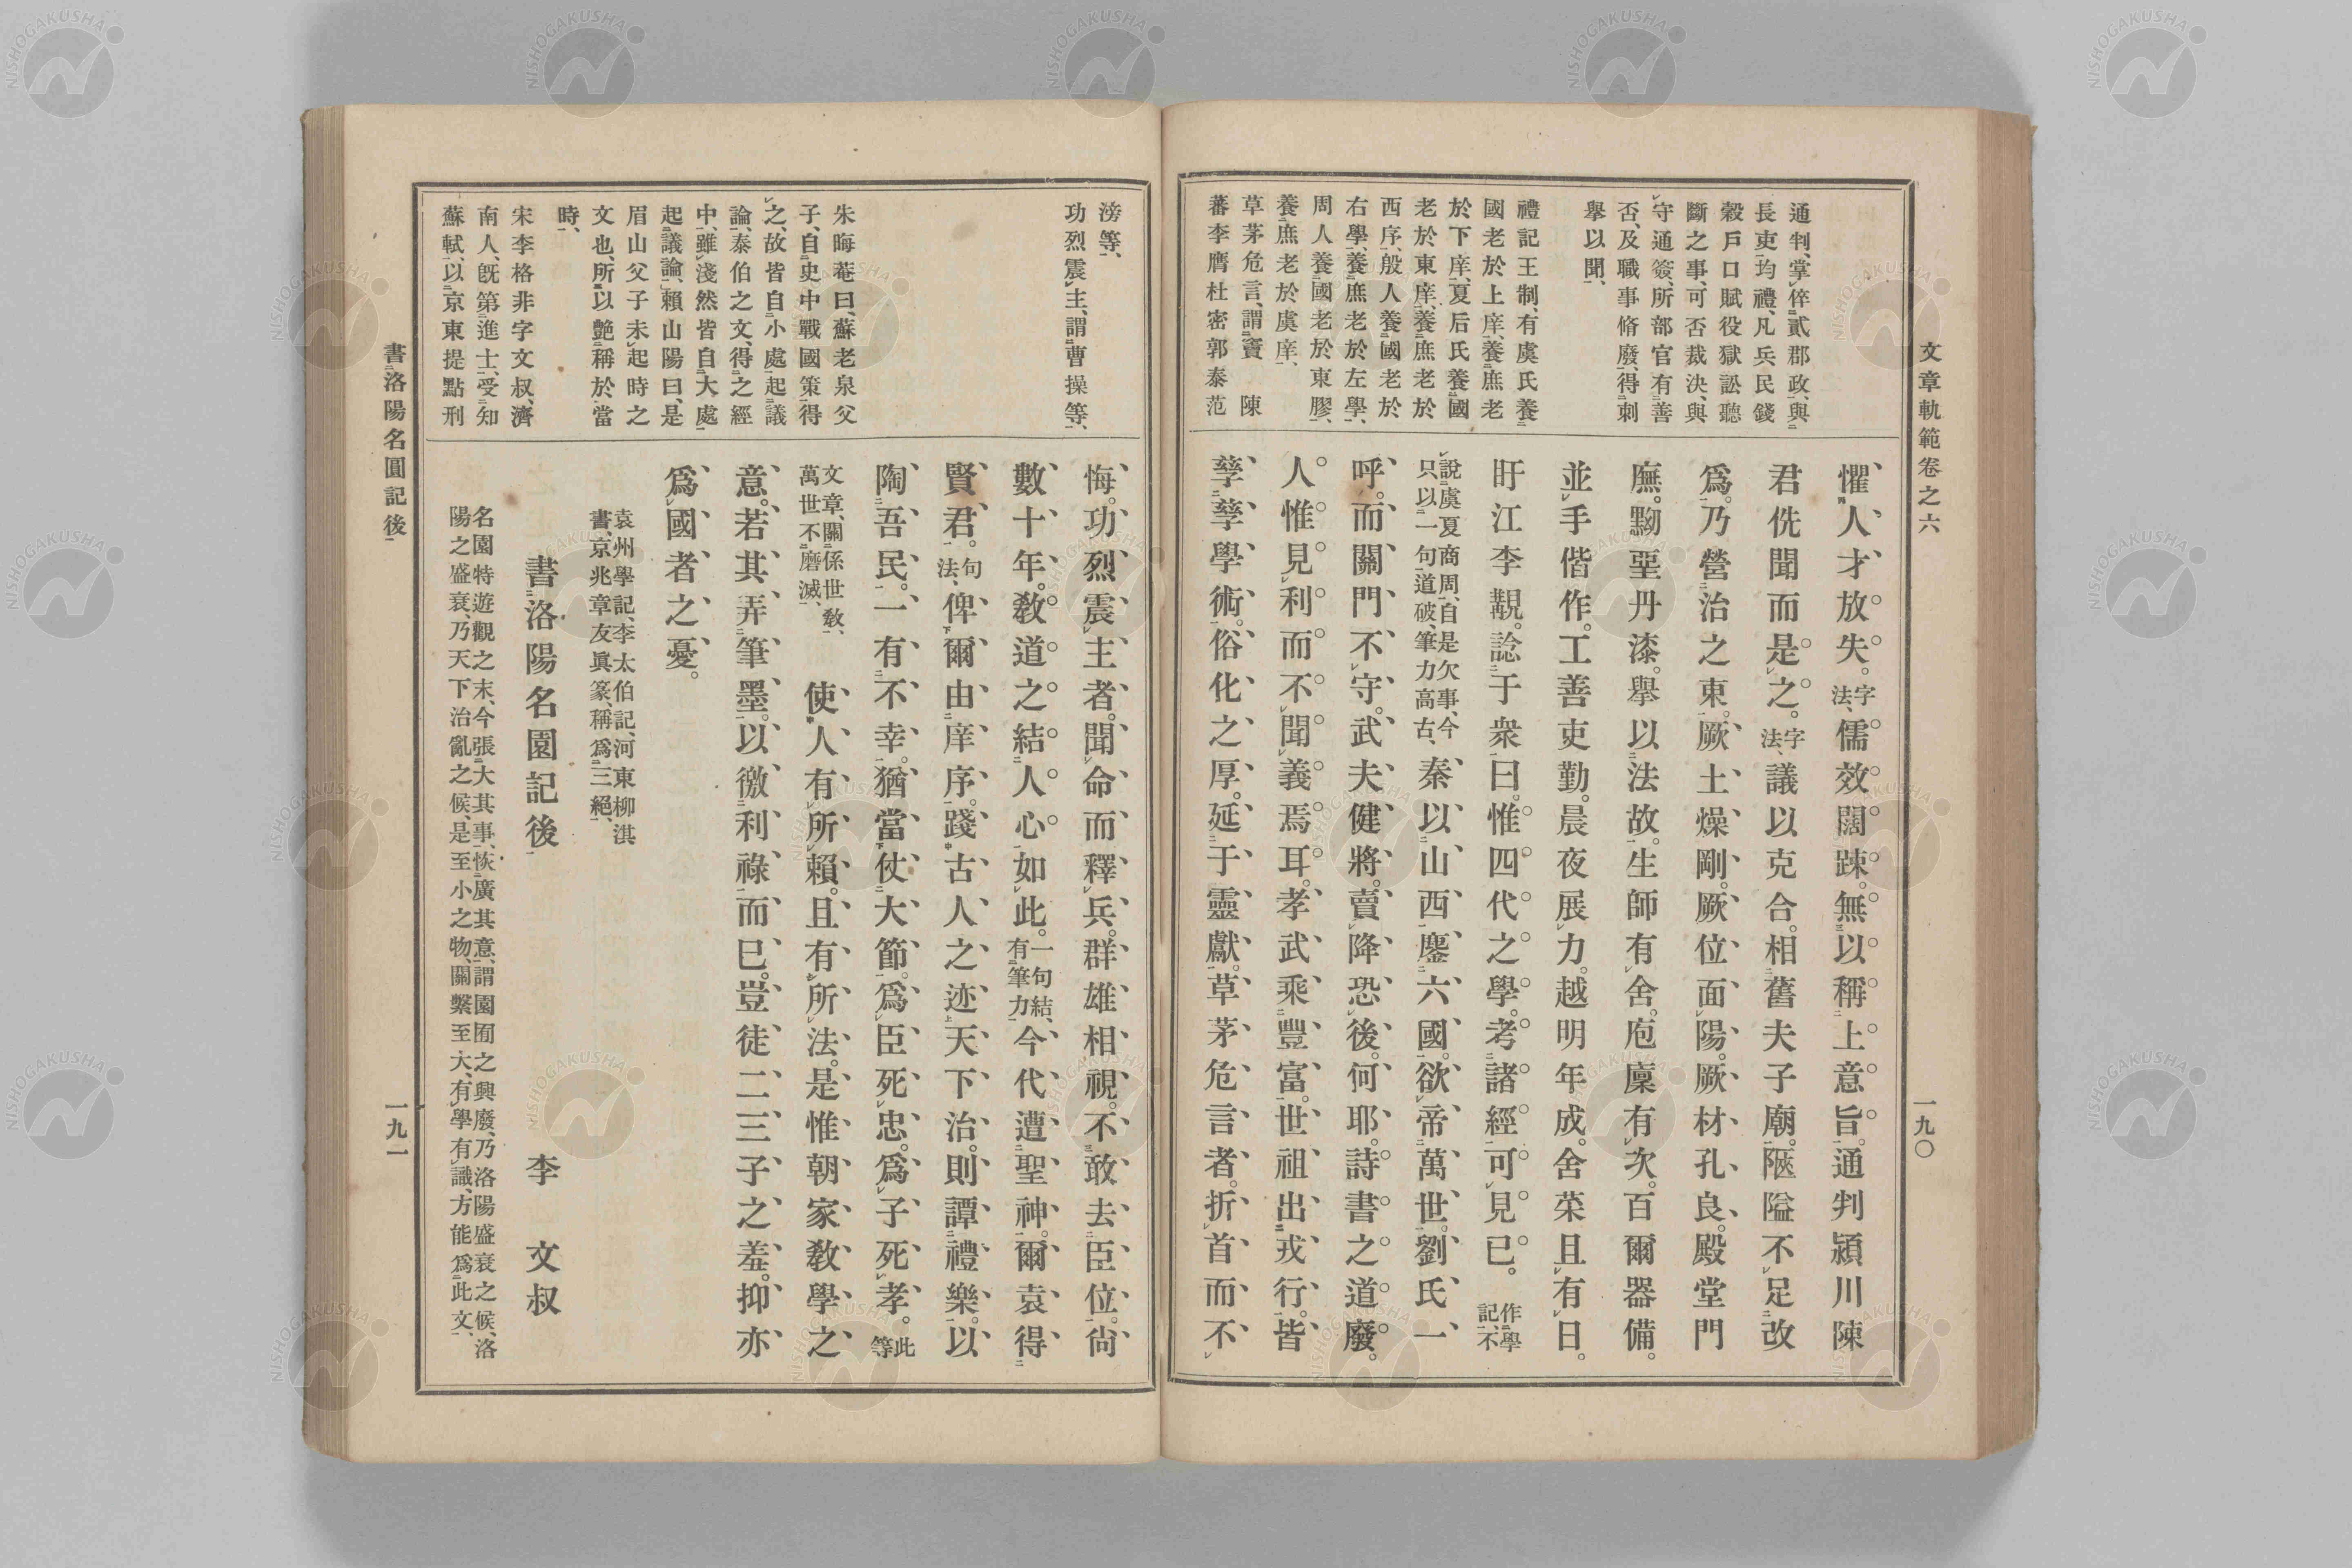 文章軌範卷之六
一九〇
通判、掌倅貳郡政、與
長吏均禮、凡兵民錢
穀戶口賦役獄訟聽
斷之事、可否裁決、與
守通簽、所部官有善
否、及職事脩廢、得刺
擧以聞、
禮記王制、有虞氏養
國老於上庠、養庶老
於下庠、夏后氏養國
老於東序、養庶老於
西序、殷人養國老於
右學、養庶老於左學、
周人養國老於東膠、
養庶老於虞庠、
草茅危言、謂竇 陳
蕃李膺杜密郭泰范
懼。人才放失。字法、儒效闊踈。無以稱上意旨。通判潁川陳
君侁聞而是之。字法、議以克合。相舊夫子廟。陿隘不足改
爲。乃營治之東。厥土燥剛。厥位面陽。厥材孔良。殿堂門
廡。黝堊丹漆。擧以法故。生師有舍。庖廩有次。百爾器備。
並手偕作。工善吏勤。晨夜展力。越明年成。舍菜且有日。
盱江李覯。諗于衆曰。惟四代之學。考諸經可見已。作學記、不
說虞夏商周、自是欠事、今只以一句道破、筆力高古、秦以山西鏖六國。欲帝萬世。劉氏一
呼。而關門不守。武夫健將。賣降恐後。何耶。詩書之道廢。
人惟見利而不聞義焉耳。孝武乘豐富。世祖出戎行。皆
孳孳學術。俗化之厚。延于靈獻。草茅危言者。折首而不
滂等、
功烈震主、謂曹操等、
朱晦菴曰、蘇老泉父
子、自史中戰國策得
之、故皆自小處起議
論、泰伯之文、得之經
中、雖淺然皆自大處
起議論、賴山陽曰、是
眉山父子未起時之
文也、所以艷稱於當
時、
宋李格非字文叔、濟
南人、旣第進士、受知
蘇軾、以京東提點刑
悔。功烈震主者。聞命而釋兵。群雄相視。不敢去臣位。尙
數十年。敎道之結人心如此。一句結、有筆力、今代遭聖神。爾袁得
賢君。句法、俾爾由庠序。踐古人之迹。天下治。則譚禮樂。以
陶吾民。一有不幸。猶當仗大節。爲臣死忠。爲子死孝。此等
文章、關係世敎、萬世不磨滅、使人有所賴。且有所法。是惟朝家敎學之
意。若其弄筆墨。以徼利祿而已。豈徒二三子之羞。抑亦
爲國者之憂。
袁州學記、李太伯記、河東柳淇
書、京兆章友眞篆、稱爲三絕、
書洛陽名園記後 李文叔
名園特遊觀之末、今張大其事、恢廣其意、謂園囿之興廢、乃洛陽盛衰之候、洛
陽之盛衰、乃天下治亂之候、是至小之物、關繫至大、有學有識、方能爲此文、
書洛陽名園記後
一九一